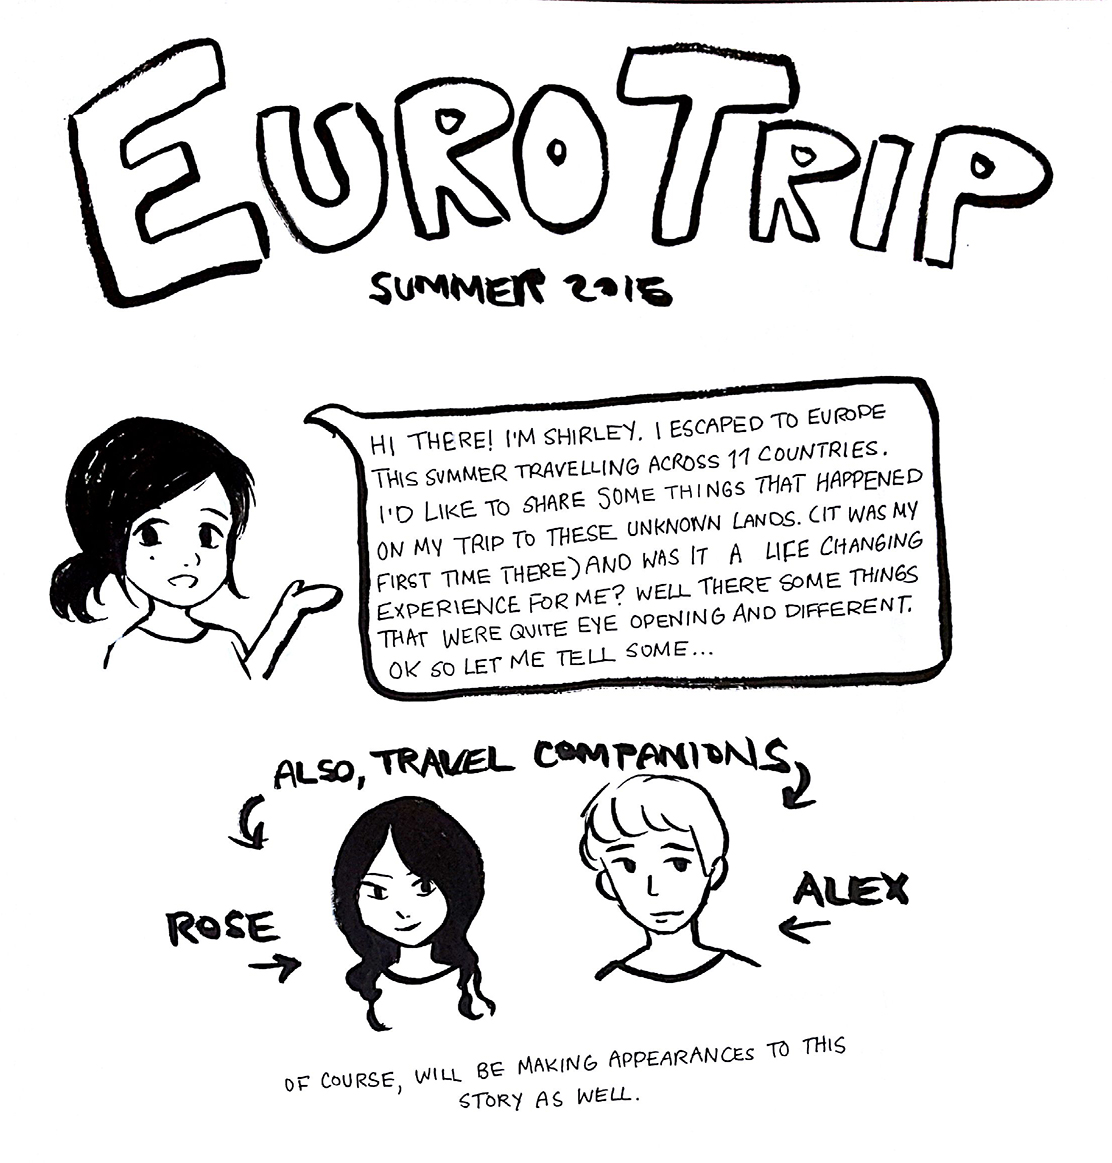 EUROTRIP
SUMMER 2015
HI THERE! I'M SHIRLEY. I ESCAPED TO EUROPE
THIS SUMMER TRAVELLING ACROSS 11 COUNTRIES.
I'D LIKE TO SHARE SOME THINGS THAT HAPPENED
ON MY TRIP TO THESE UNKNOWN LANDS. (IT WAS MY
FIRST TIME THERE) AND WAS IT A LIFE CHANGING
EXPERIENCE FOR ME? WELL THERE SOME THINGS
THAT WERE QUITE EYE OPENING AND DIFFERENT.
OK SO LET ME TELL SOME...
ALSO, TRAVEL COMPANIONS,
ROSE
ALEX
OF COURSE, WILL BE MAKING APPEARANCES TO THIS
STORY AS WELL.